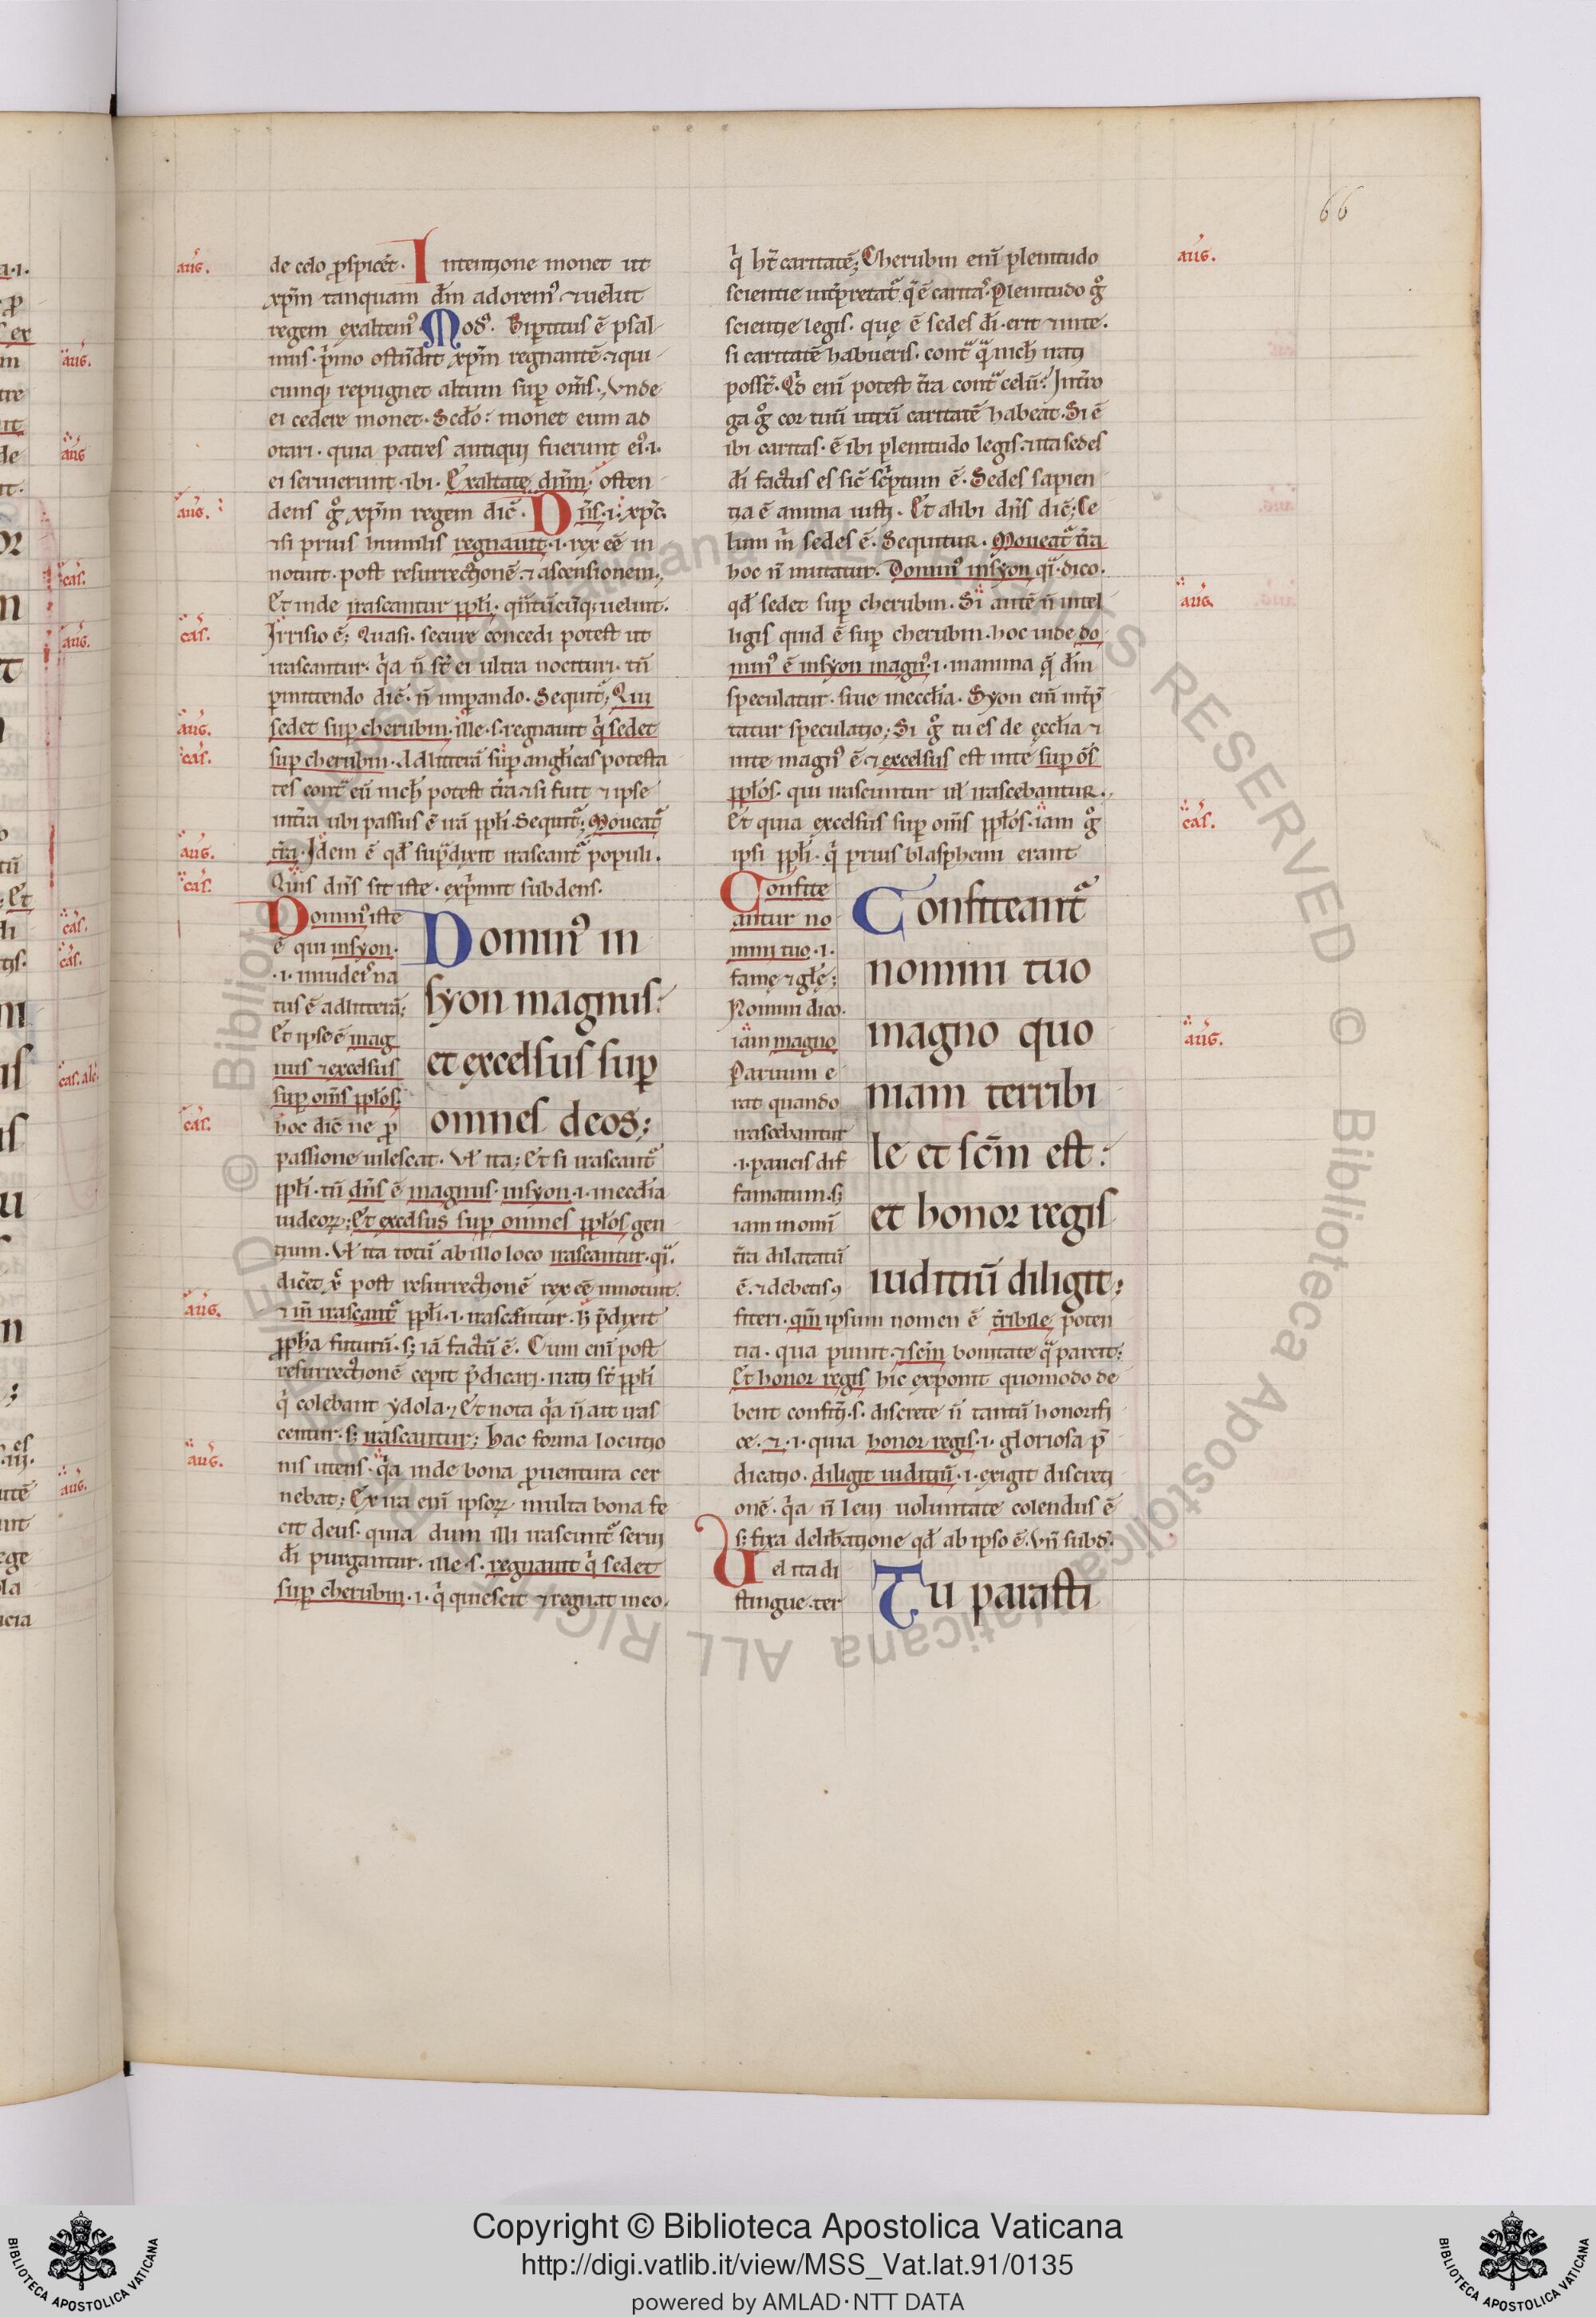 66
de celo ꝓspicēt. Intentione monet ut
xp̄m tanquam dm̄ adorem᷒ ⁊ uelut
regem exaltem᷒. Mod᷒. Bipertitus ē psal-
mus. p̄mo ostendit xp̄m regnantē ⁊ qui-
cumq; repugnet altum sup om̄s. Vnde
ei cedere monet. Scd̄o: monet eum ad
orari. quia patres antiqui fuerunt ei᷒.i.
ei seruierunt. ibi. Exaltate dn̄m. osten
dens g̊ xp̄m regem dic̄. Dn̄s.i. xp̄c
⁊si prius humilis regnauit.i. rex eē in
notuit. post resurrectionē ⁊ ascensionem.
Et inde irascantur ppl̄i. qn̄tūcūq; uelint.
Irrisio ē; Quasi. secure concedi potest ut
irascantur. q̄a n̄ st̄ ei ultra nocituri. tn̄
pmittendo dic̄. n̄ impando. Sequit᷑; Qui
sedet sup cherubin. ille.s. regnauit q̇ sedet
sup cherubin. Ad litterā sup angl̄icas potesta
tes cont̄ eū nich̄ potest t̄ra ⁊ si fuit ⁊ ipse
in t̄ra ubi passus ē irā ppl̄i. Sequit᷑; Moueat᷑
t̄ra. Idem ē qd̄ sup̄dixit irascant᷑ populi.
Quis dn̄s sit iste. exp̄mit subdens.
Domin᷒ iste
ē qui in syon.
.i. in iudeis na
tus ē ad litterā;
Et ipse ē mag
nus ⁊ excelsus
sup om̄s ppl̄os.
hoc dic̄ ne ꝓ
Domin᷒ in
syon magnus:
et excelsus sup
omnes deos;
passione uilescat. Vl̄ ita; Et si irascant᷑
ppl̄i. tn̄ dn̄s ē magnus. in syon.i. in eccl̄ia
iudeoꝝ; Et excelsus sup omnes ppl̄os gen
tium. Vl̄ ita totū ab illo loco irascantur. q̄.
dicēt post resurrectionē rex eē innotuit.
⁊ in̄ irascant᷑ ppl̄i.i. irascentur. h̄ p̄dixit
ꝓph̄a futurū. s; iā factū ē. Cum eni᷒ post
resurrectionē cepit p̄dicari. irati st̄ ppl̄i
q̇ colebant ydola. Et nota q̄a n̄ ait iras
centur. s; irascantur; hac forma locutio
nis utens. q̄a inde bona ꝓuentura cer
nebat; Ex ira eni᷒ ipsoꝝ multa bona fe
cit deus. quia dum illi irascunt᷑ serui
dī purgantur. ille.s. regnauit q̇ sedet
sup cherubin.i. q̇ quiescit ⁊ regnat in eo.
q̇ ht̄ caritatē; Cherubin eni᷒ plenitudo
scientie int̄pretat᷑ q̄ ē carita᷒. Plenitudo g̊
scientie legis. que ē sedes dī. erit ⁊ in te.
si caritatē habueris. cont̄ q̄ nich̄ irati
poss̄t. Qd̄ eni᷒ potest t̄ra cont̄ celū? Int̄ro
ga g̊ cor tuū utrū caritatē habeat. Si ē
ibi caritas. ē ibi plenitudo legis. ⁊ ita sedes
dī factus es sic̄ sc̄ptum ē. Sedes sapien
tia ē anima iusti. Et alibi dn̄s dic̄; Ce
lum m̄ sedes ē. Sequitur. Moueat᷑ t̄ra
hoc n̄ mutatur. Domin᷒ in syon q̄. dico.
qd̄ sedet sup cherubin. Si autē n̄ intel
ligis quid ē sup cherubin. hoc uide do
min᷒ ē in syon magn᷒.i. in anima q̄ dm̄
speculatur. siue in eccl̄ia. Syon eni᷒ int̄p̄
tatur speculatio; Si g̊ tu es de eccl̄ia ⁊
in te magn᷒ ē ⁊ excelsus est in te sup ōs
ppl̄os. qui irascuntur ul̄ irascebantur.
Et quia excelsus sup om̄s ppl̄os. iam g̊
ipsi ppl̄i. q̇ prius blasphemi erant
Confite
antur no
mini tuo.i.
fame ⁊ gl̄e;
Nomini dico.
iam magno
Paruum e
rat quando
irascebantur
.i. paucis dif
famatum. s;
iam in om̄i
t̄ra dilatatū
ē. ⁊ debetis ꝯ
Confiteant᷑
nomini tuo
magno quo
niam terribi
le et sc̄m est:
et honor regis
iuditiū diligit;
fiteri. qm̄ ipsum nomen ē t̄ribile. poten
tia. qua punit ⁊ sc̄m bonitate q̄ parcit;
Et honor regis hic exponit quomodo de
bent confiti.s. discrete n̄ tantū honorifi
ce. ⁊.i. quia honor regis.i. gloriosa p̄
dicatio. diligit iuditiū.i. exigit discreti
onē. q̄a n̄ leui uoluntate colendus ē
s; fixa delib̄atione qd̄ ab ipso ē. Vn̄ subd᷒.
Uel ita di
stingue. ter
Tu parasti
aug.
aug.
cas.
aug.
cas.
aug.
cas.
cas.
aug.
aug.
aug.
aug.
cas.
aug.
Copyright © Biblioteca Apostolica Vaticana
http://digi.vatlib.it/view/MSS_Vat.lat.91/0135
powered by AMLAD·NTT DATA
BIBLIOTECA APOSTOLICA VATICANA
BIBLIOTECA APOSTOLICA VATICANA
© Biblioteca Apostolica Vaticana ALL RIGHTS RESERVED © Biblioteca Apostolica Vaticana ALL RIGHTS RESERVED